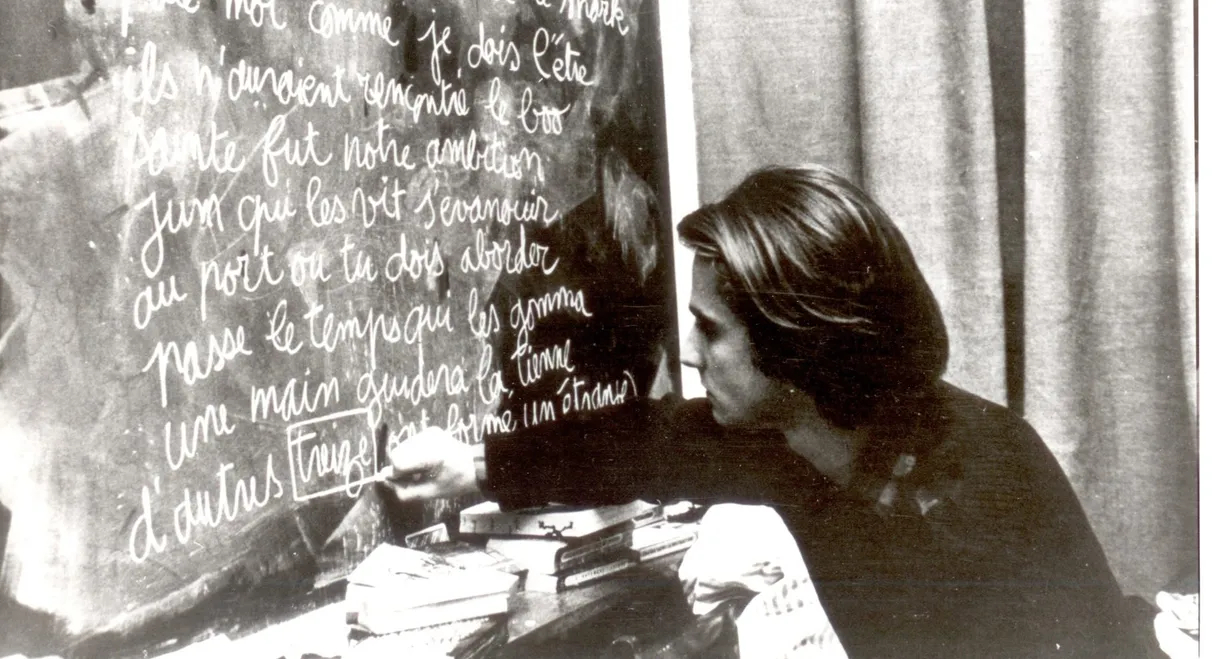 moi comme je dois l'être
ils n'auraient rencontré le boo
Sainte fut notre ambition
Jum qui les vit s'evanouir
au port ou tu dois aborder
passe le temps qui les gomma
une main guidera la tienne
d'autres treize ont formé un étrange